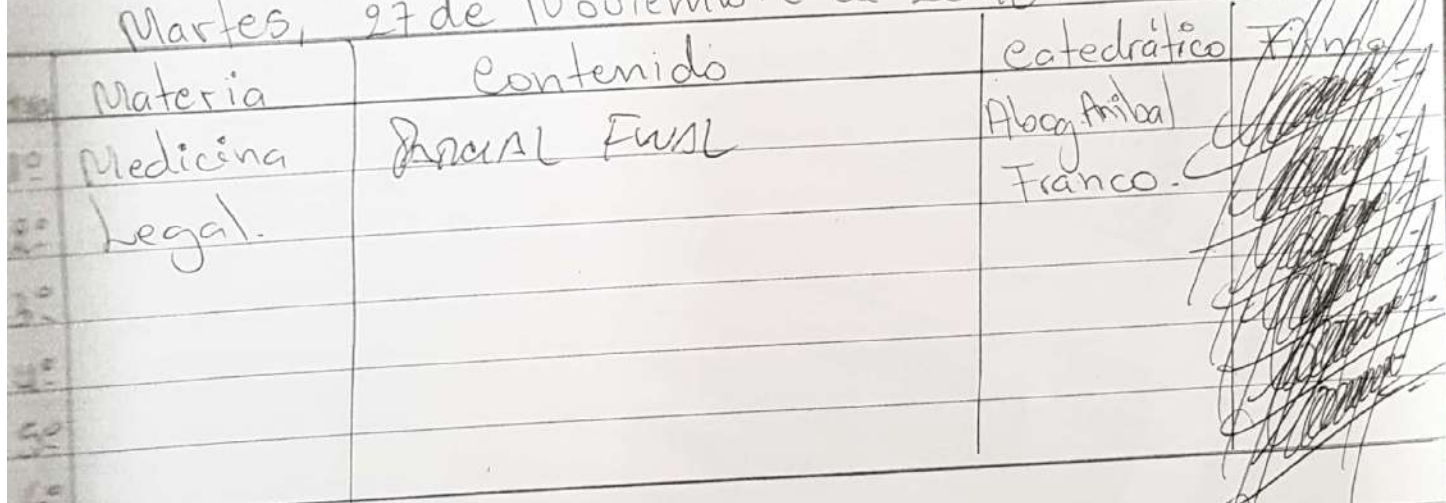 Martes, 27 de Noviembre
Materia Contenido Catedrático Firma
Medicina Parcial Final Abog Anibal
Legal. Franco.